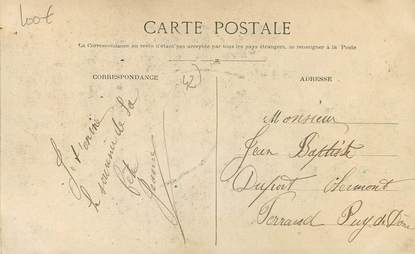 100€
CARTE POSTALE
La Correspondance au recto n'étant pas acceptée par tous les pays étrangers, se renseigner à la Poste
CORRESPONDANCE
42
ADRESSE
Je t'envoie
le souvenir de la
fête
Monsieur
Jean Baptiste
Dupint Clermont
Ferrand Puy de Dôme